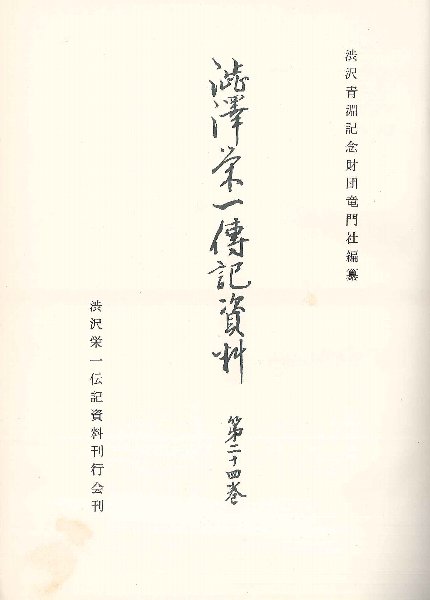 渋沢青淵記念財団竜門社編纂
澁澤栄一傳記資料
第二十四巻
渋沢栄一伝記資料刊行会刊